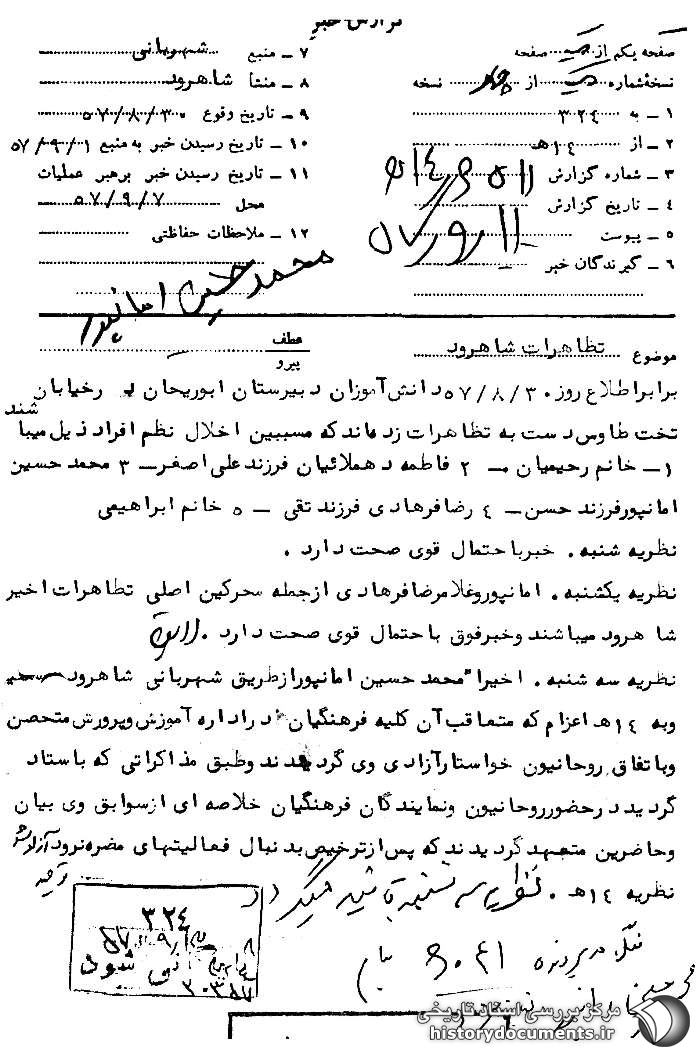 گزارش خبر
صفحه یکم از یک صفحه
نسخه شماره یک از چهار نسخه
۱ – به ۳۲۴
۲ – از ۱۴ه‍
۳ – شماره گزارش
۴ – تاریخ گزارش
۵ – پیوست
۶ – گیرندگان خبر
۷ – منبع شهربانی
۸ – منشأ شاهرود
۹ – تاریخ وقوع ۵۷/۸/۳۰
۱۰ – تاریخ رسیدن خبر به منبع ۵۷/۰۹/۰۱
۱۱ – تاریخ رسیدن خبر برهبر عملیات
محل ۵۷/۹/۷
۱۲ – ملاحظات حفاظتی
محمد حسین امانپور
موضوع تظاهرات شاهرود
عطف
پیرو
برابر اطلاع روز ۵۷/۸/۳۰ دانش‌آموزان دبیرستان ابوریحان در خیابان
تخت طاوس دست به تظاهرات زده‌اند که مسببین اخلال نظم افراد ذیل میبا شند
۱ – خانم رحیمیان – ۲ فاطمه دهملائیان فرزند علی اصغر – ۳ محمد حسین
امانپور فرزند حسن – ٤ رضا فرهادی فرزند تقی – ٥ خانم ابراهیمی
نظریه شنبه . خبر با حتمال قوی صحت دارد .
نظریه یکشنبه . امانپور و غلامرضا فرهادی از جمله محرکین اصلی تظاهرات اخیر
شا هرود میبا شند و خبر فوق با حتمال قوی صحت دارد .
نظریه سه شنبه . اخیرا" محمد حسین امانپور از طریق شهربانی شا هرود
وبه ۱۴ه‍ اعزام که متعاقب آن کلیه فرهنگیان در اداره آموزش و پرورش متحصن
وبا تفاق روحانیون خواستار آزادی وی گردیدند و طبق مذاکراتی که با ستاد
گردید در حضور روحانیون و نمایندگان فرهنگیان خلاصه ای از سوابق وی بیان
وحاضرین متعهد گردیدند که پس از ترخیص بدنبال فعالیتهای مضره نرود آزاد شد
نظریه ۱۴ه‍ . نظریه سه شنبه تائید میگردد
۳۲۴
مرکز بررسی اسناد تاریخی
historydocuments.ir